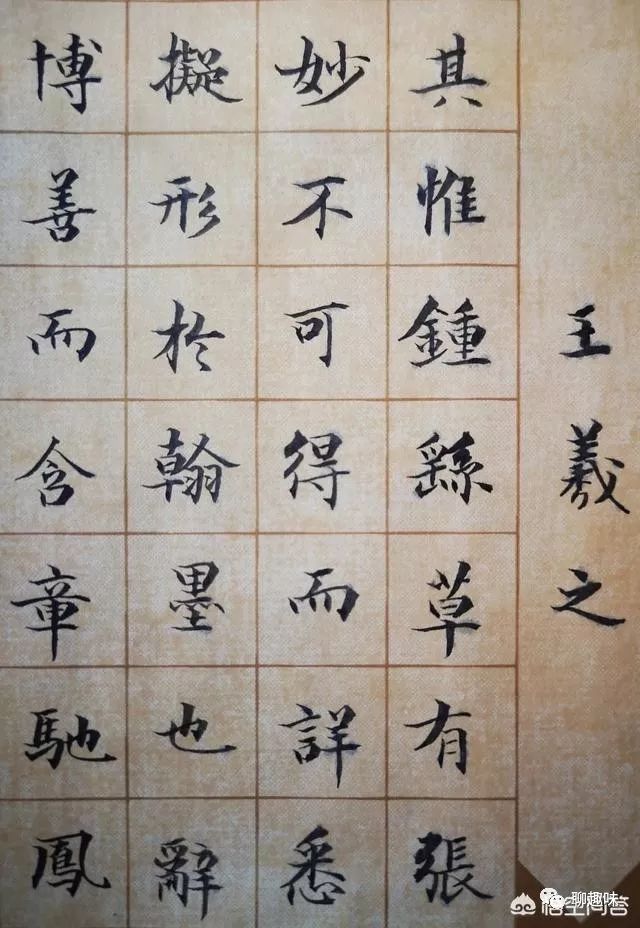 王羲之
其惟鍾繇草有張
妙不可得而詳悉
擬形於翰墨也辭
博善而含章馳鳳
聊趣味
悟空问答